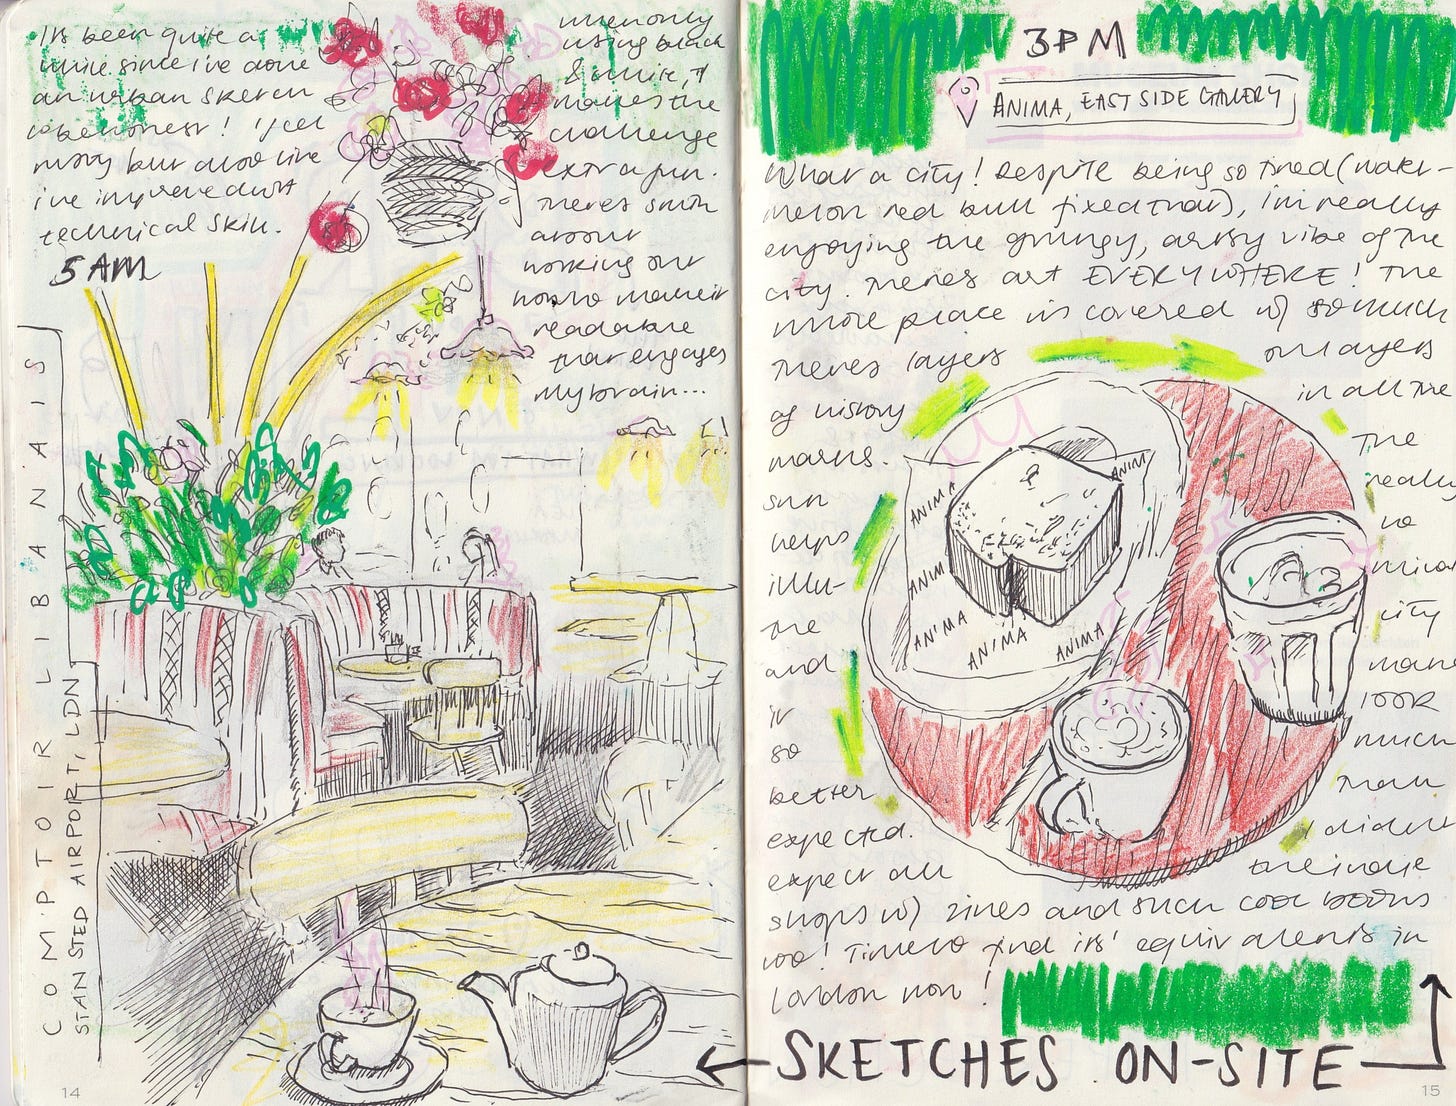 It's been quite a
while since i've done
an urban sketch
to be honest! i feel
rusty but also like
i've improved
technical skill.
5AM
when only
using black
& white, it
makes the
challenge
extra fun.
There's smth
about
working out
how to make it
readable
that engages
my brain...
COMPTOIR LIBANAIS
STANSTED AIRPORT, LDN
14
3PM
ANIMA, EAST SIDE GALLERY
What a city! Despite being so tired (water-
melon red bull fixed that), i'm really
enjoying the grungy, artsy vibe of the
city. There's art EVERYWHERE! The
whole place is covered w/ so much
There's layers on layers
of history in all the
marks The
sun really
helps
illu-
the city
and
it look
so much
better than
expected. i didn't
expect all the indie
shops w/ zines and such cool books
too! Time to find its' equivalents in
London now!
ANIMA
ANIM
ANIM
ANIMA
ANIMA
ANIMA
SKETCHES ON-SITE
15